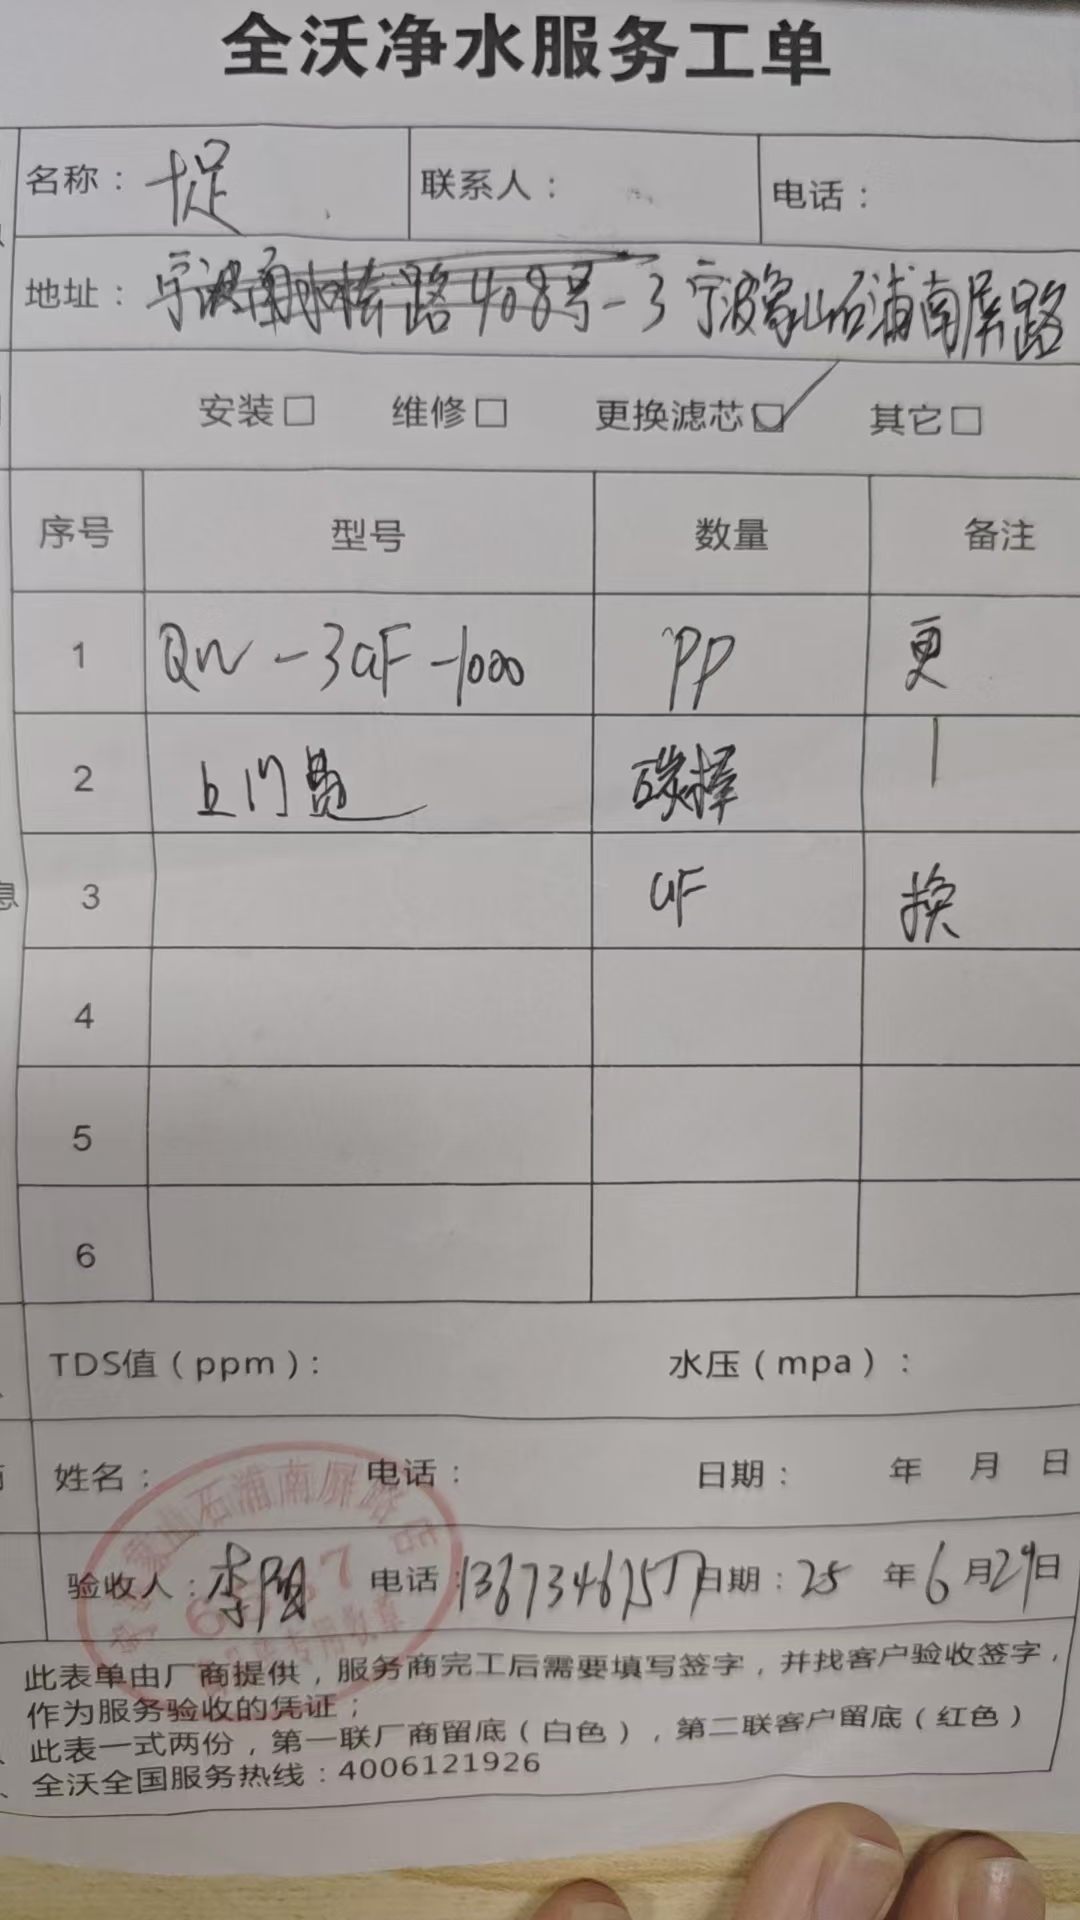 全沃净水服务工单
名称：十足 联系人： 电话：
地址： 路408号-3 宁波象山石浦南屏路
安装□ 维修□ 更换滤芯☑ 其它□
序号 型号 数量 备注
1 QW-3UF-1000 PP 更
2 上门费 碳棒 |
息 3 UF 换
4
5
6
TDS值（ppm）： 水压（mpa）：
姓名： 电话： 日期： 年 月 日
象山石浦南屏路店
验收人：李 电话： 日期：25 年6月29日
此表单由厂商提供，服务商完工后需要填写签字，并找客户验收签字，
作为服务验收的凭证；
此表一式两份，第一联厂商留底（白色），第二联客户留底（红色）
全沃全国服务热线：4006121926